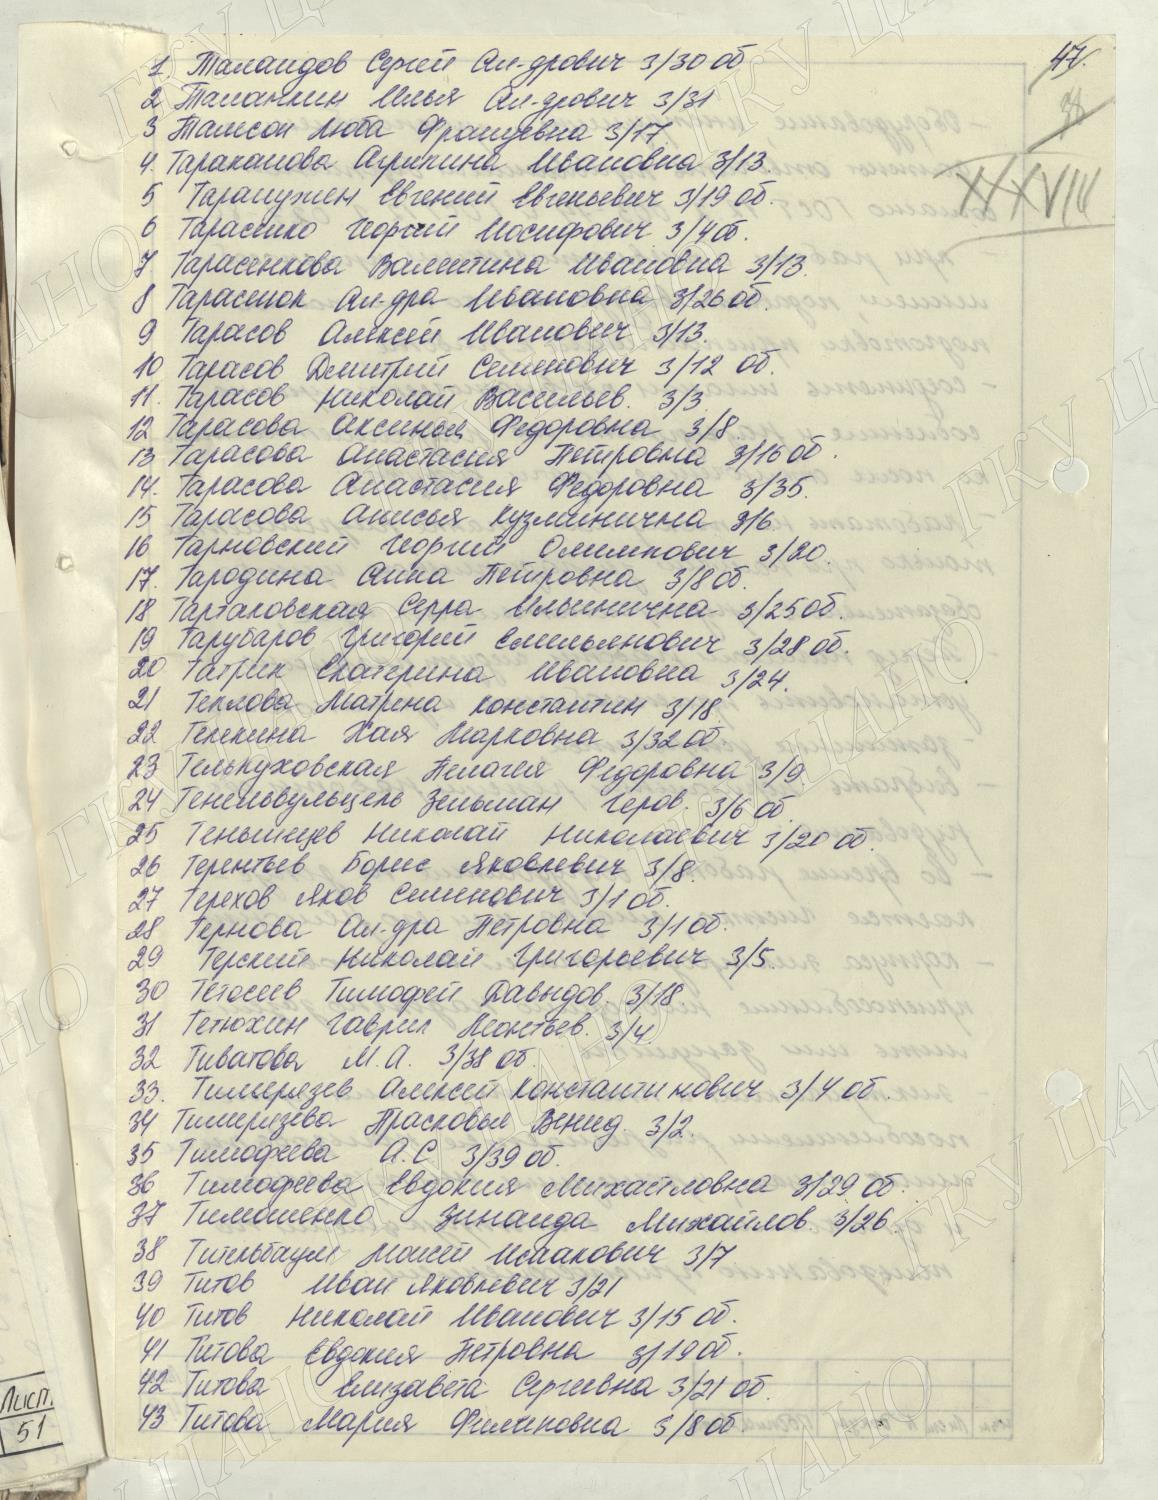 47.
38
XXXVIII
1. Таландов Сергей Ал-дрович 3/30 об
2 Таланкин Илья Ал-дрович 3/31
3 Тамсон Люба Францевна 3/17
4. Тараканова Агрипина Ивановна 3/13.
5 Тарапужен Евгений Евгеньевич 3/19 об.
6 Тарасенко Георгий Иосифович 3/4 об.
7 Тарасенкова Валентина Ивановна 3/13.
8 Тарасенок Ал-дра Ивановна 3/26 об.
9 Тарасов Алексей Иванович 3/13.
10 Тарасов Дмитрий Семенович 3/12 об.
11. Тарасов Николай Васильев. 3/3
12 Тарасова Аксинья Федоровна 3/8.
13 Тарасова Анастасия Петровна 3/16 об.
14. Тарасова Анастасия Федоровна 3/35.
15 Тарасова Анисья Кузьминична 3/6
16 Тарновский Георгий Олимпович 3/20.
17. Тародина Анна Петровна 3/8 об.
18 Тартаковская Серра Ильинична 3/25 об.
19 Тарубаров Григорий Емельянович 3/28 об.
20 Татрик Екатерина Ивановна 3/24.
21 Теклова Матрина Константин 3/18.
22 Телекина Хая Марковна 3/32 об
23 Телькуховская Пелагея Федоровна 3/9.
24 Тененвульцель Зельман Геров. 3/6 об.
25 Теньшицев Николай Николаевич 3/20 об.
26 Терентьев Борис Яковлевич 3/8.
27 Терехов Яков Семенович 3/1 об.
28 Тернова Ал-дра Петровна 3/1 об.
29 Терский Николай Григорьевич 3/5.
30 Тетасеев Тимофей Давыдов. 3/18.
31 Тетюхин Гаврил Леонтьев. 3/4.
32 Тиватова М.А. 3/38 об.
33. Тимерязев Алексей Константинович 3/4 об.
34 Тимерязева Прасковья Венид. 3/2.
35 Тимофеева А.С 3/39 об.
36 Тимофеева Евдокия Михайловна 3/29 об.
37 Тимошенко Зинаида Михайлов. 3/26.
38 Тительбаум Моисей Исаакович 3/7
39 Титов Иван Яковлевич 3/21
40 Титов Николай Иванович 3/15 об.
41 Титова Евдокия Петровна 3/19 об.
42 Титова Елизавета Сергеевна 3/21 об.
43 Титова Мария Филиповна 3/8 об.
Лист.
51
ГКУ ЦАНО